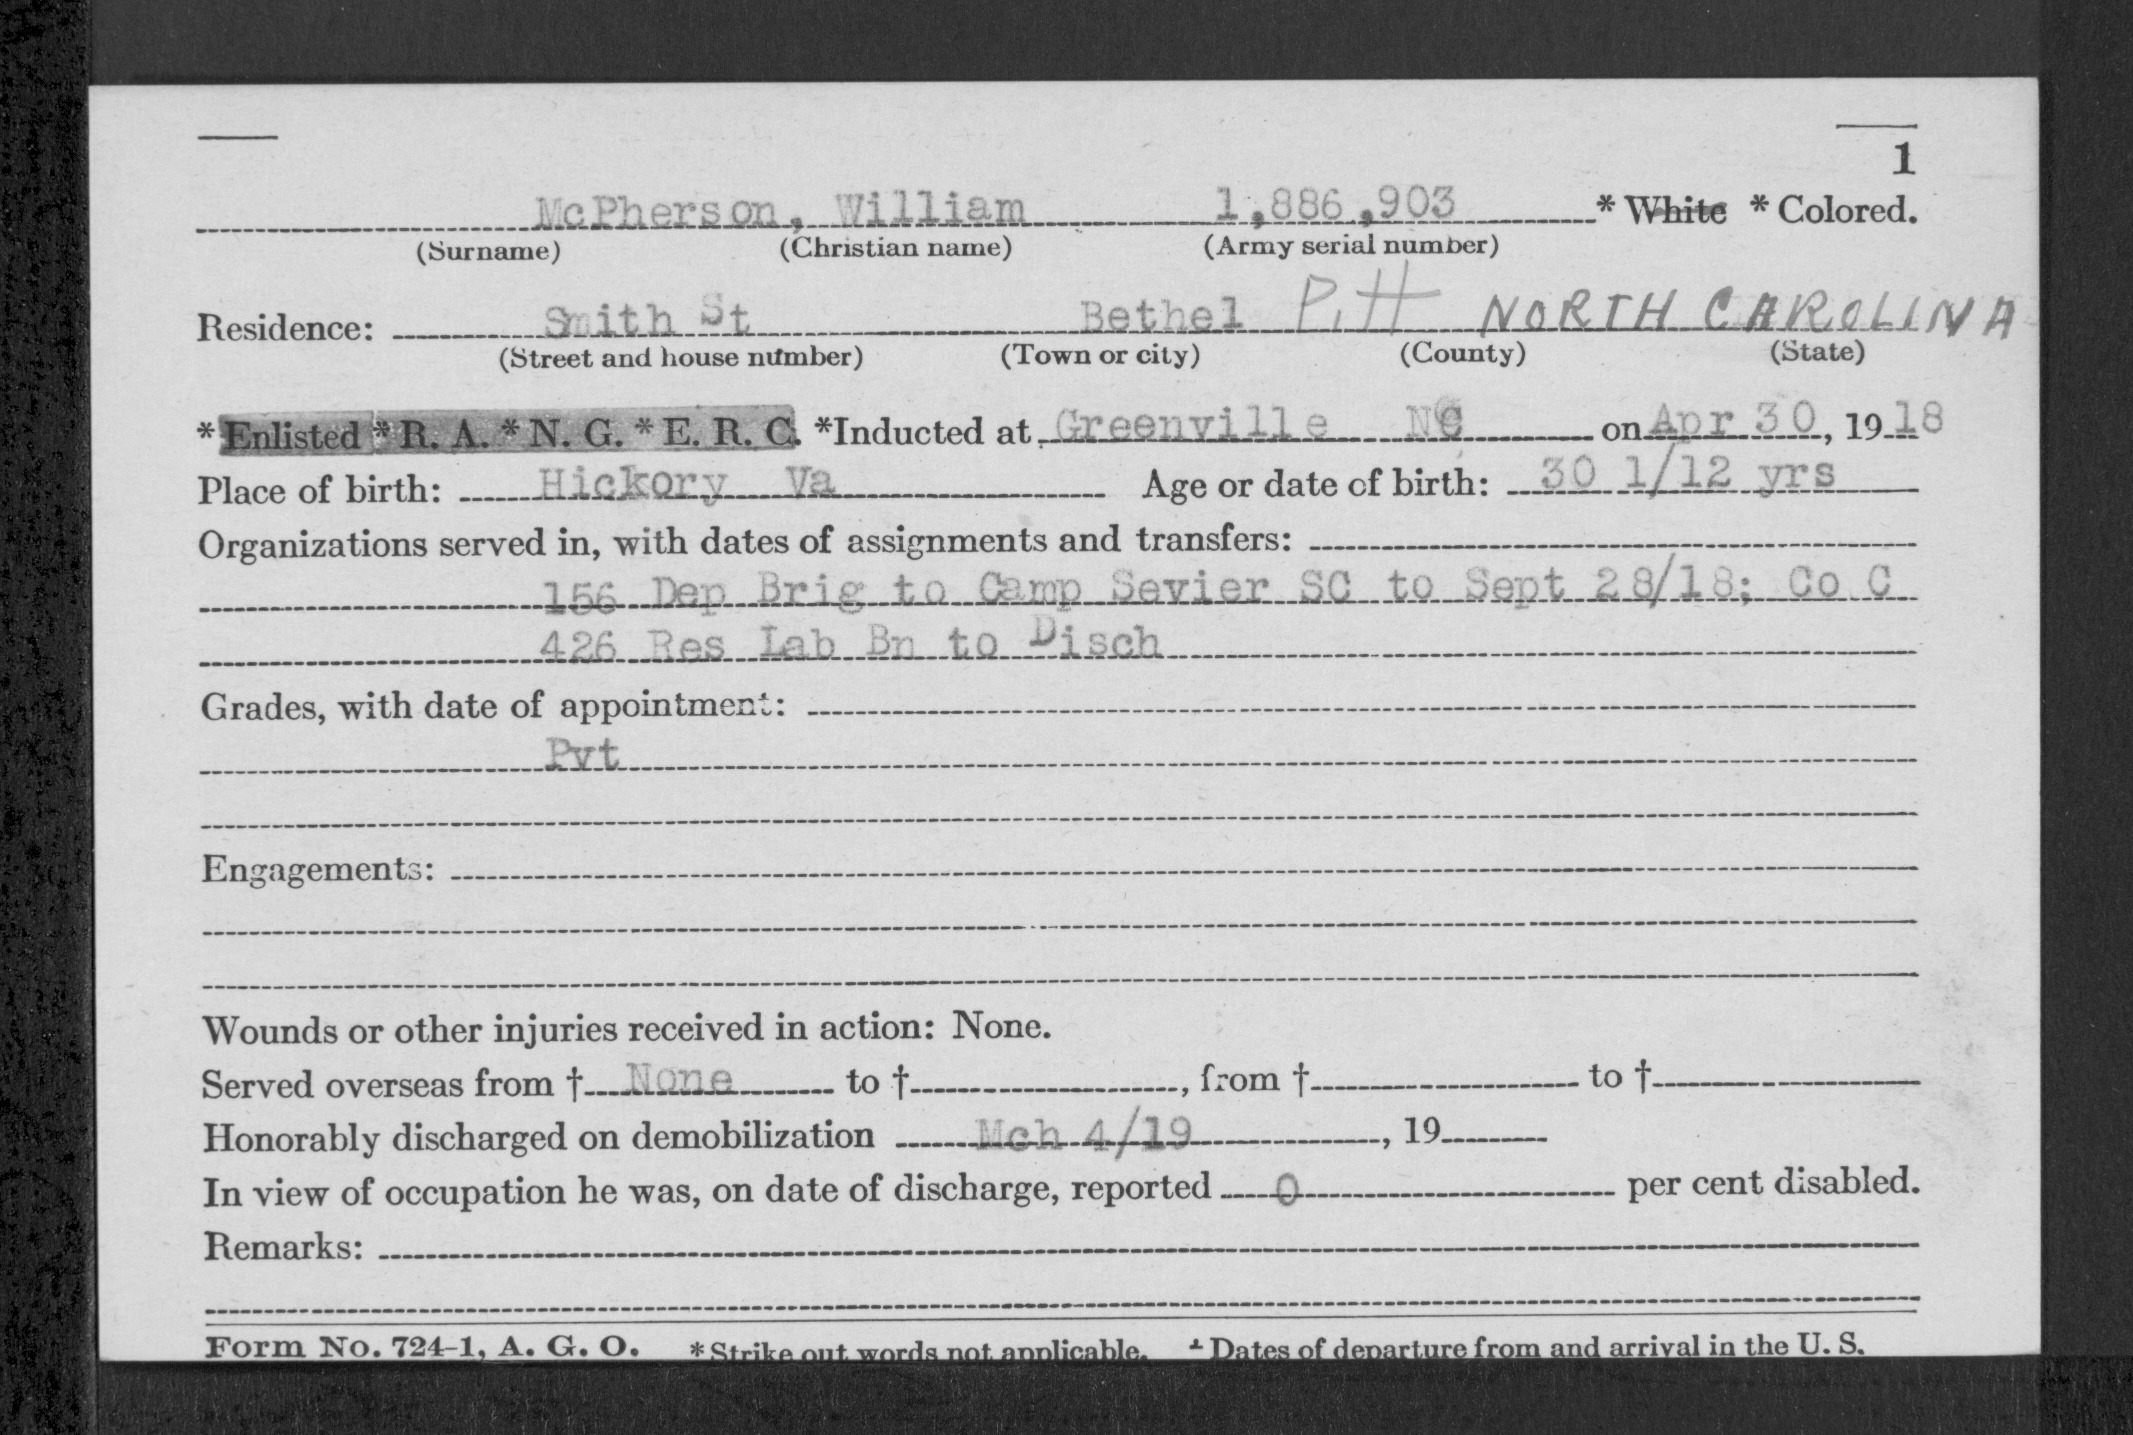 1
McPherson, William 1,886,903 * White * Colored.
(Surname) (Christian name) (Army serial number)
Residence: Smith St Bethel Pitt NORTH CAROLINA
(Street and house number) (Town or city) (County) (State)
* Enlisted * R. A. * N. G. * E. R. C. *Inducted at Greenville NC on Apr 30, 1918
Place of birth: Hickory Va Age or date of birth: 30 1/12 yrs
Organizations served in, with dates of assignments and transfers:
156 Dep Brig to Camp Sevier SC to Sept 28/18; Co C
426 Res Lab Bn to Disch
Grades, with date of appointment:
Pvt
Engagements:
Wounds or other injuries received in action: None.
Served overseas from † None to †, from † to †
Honorably discharged on demobilization Mch 4/19, 19
In view of occupation he was, on date of discharge, reported 0 per cent disabled.
Remarks:
Form No. 724-1, A. G. O. * Strike out words not applicable. † Dates of departure from and arrival in the U. S.